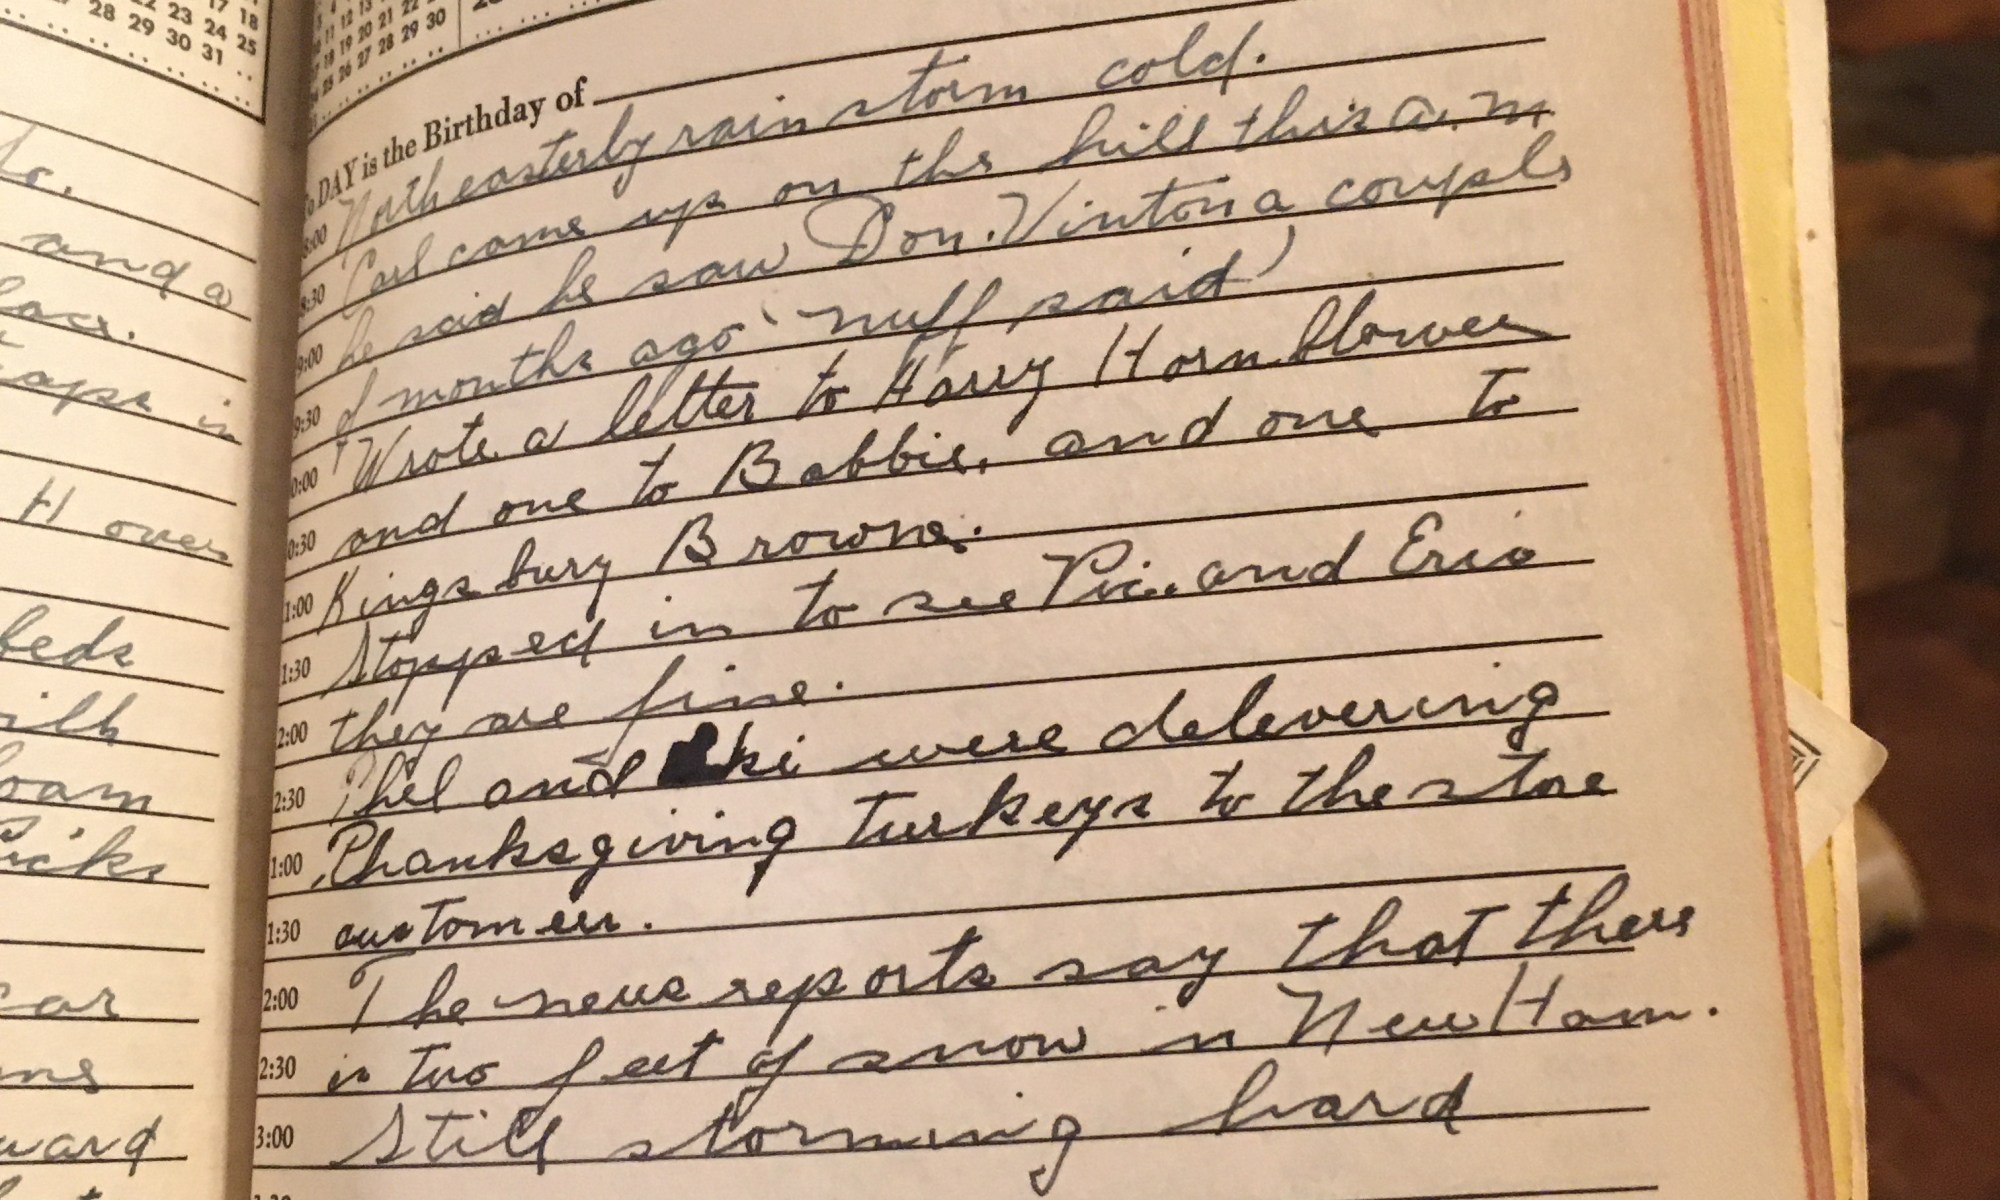 17 18
22 23 24 25
28 29 30 31
11 12 13
18 19 20 21 22
25 26 27 28 29 30
To DAY is the Birthday of
to.
and a
in
H over
beds
loam
car
ward
8:00 North easterly rain storm cold.
8:30 Carl came up on the hill this a.m
9:00 he said he saw Don. Vinton a couple
9:30 of months ago 'nuff said'
0:00 Wrote a letter to Harry Hornblower
0:30 and one to Babbie, and one to
1:00 Kingsbury Browne.
1:30 Stopped in to see Pic. and Eric
2:00 they are fine.
2:30 Phel and ki were delevering
1:00 Thanksgiving turkeys to the store
1:30 customers.
2:00 The news reports say that there
2:30 is two feet of snow in New Ham.
3:00 Still storming hard